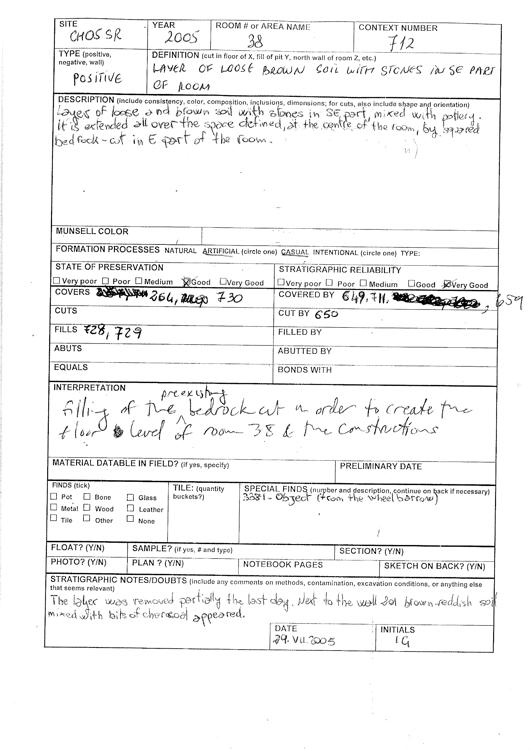 SITE
CHOSSR
YEAR
2005
ROOM # or AREA NAME
38
CONTEXT NUMBER
712
TYPE (positive, negative, wall)
POSITIVE
DEFINITION (cut in floor of X, fill of pit Y, north wall of room Z, etc.)
LAYER OF LOOSE BROWN SOIL WITH STONES IN SE PART
OF ROOM
DESCRIPTION (Include consistency, color, composition, inclusions, dimensions; for cuts, also include shape and orientation)
Layers of loose and brown soil with stones in SE part, mixed with pottery.
It is extended all over the space defined, at the centre of the room, by squared
bedrock-cut in E part of the room.
MUNSELL COLOR
FORMATION PROCESSES NATURAL ARTIFICIAL (circle one) CASUAL INTENTIONAL (circle one) TYPE:
STATE OF PRESERVATION
Very poor Poor Medium Good Very Good
STRATIGRAPHIC RELIABILITY
Very poor Poor Medium Good Very Good
COVERS 264, 730
COVERED BY 649, 711, 659
CUTS
CUT BY 650
FILLS 728, 729
FILLED BY
ABUTS
ABUTTED BY
EQUALS
BONDS WITH
INTERPRETATION
preexisting
filling of the bedrock cut in order to create the
floor level of room 38 & the constructions
MATERIAL DATABLE IN FIELD? (if yes, specify)
PRELIMINARY DATE
FINDS (tick)
Pot Bone Glass
Metal Wood Leather
Tile Other None
TILE: (quantity buckets?)
SPECIAL FINDS (number and description, continue on back if necessary)
3381 - Object (from the wheelbarrow)
FLOAT? (Y/N)
SAMPLE? (if yes, # and type)
SECTION? (Y/N)
PHOTO? (Y/N)
PLAN ? (Y/N)
NOTEBOOK PAGES
SKETCH ON BACK? (Y/N)
STRATIGRAPHIC NOTES/DOUBTS (include any comments on methods, contamination, excavation conditions, or anything else
that seems relevant)
The layer was removed partially the last day. Next to the wall 201 brown-reddish soil
mixed with bits of charcoal appeared.
DATE
29.VII.2005
INITIALS
IG